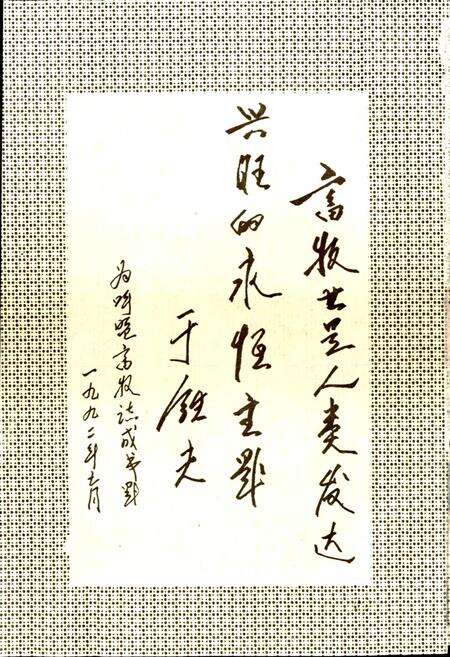 畜牧业是人类发达
兴旺的永恒主题
于铁夫
为呼盟畜牧志成书题
一九九二年七月